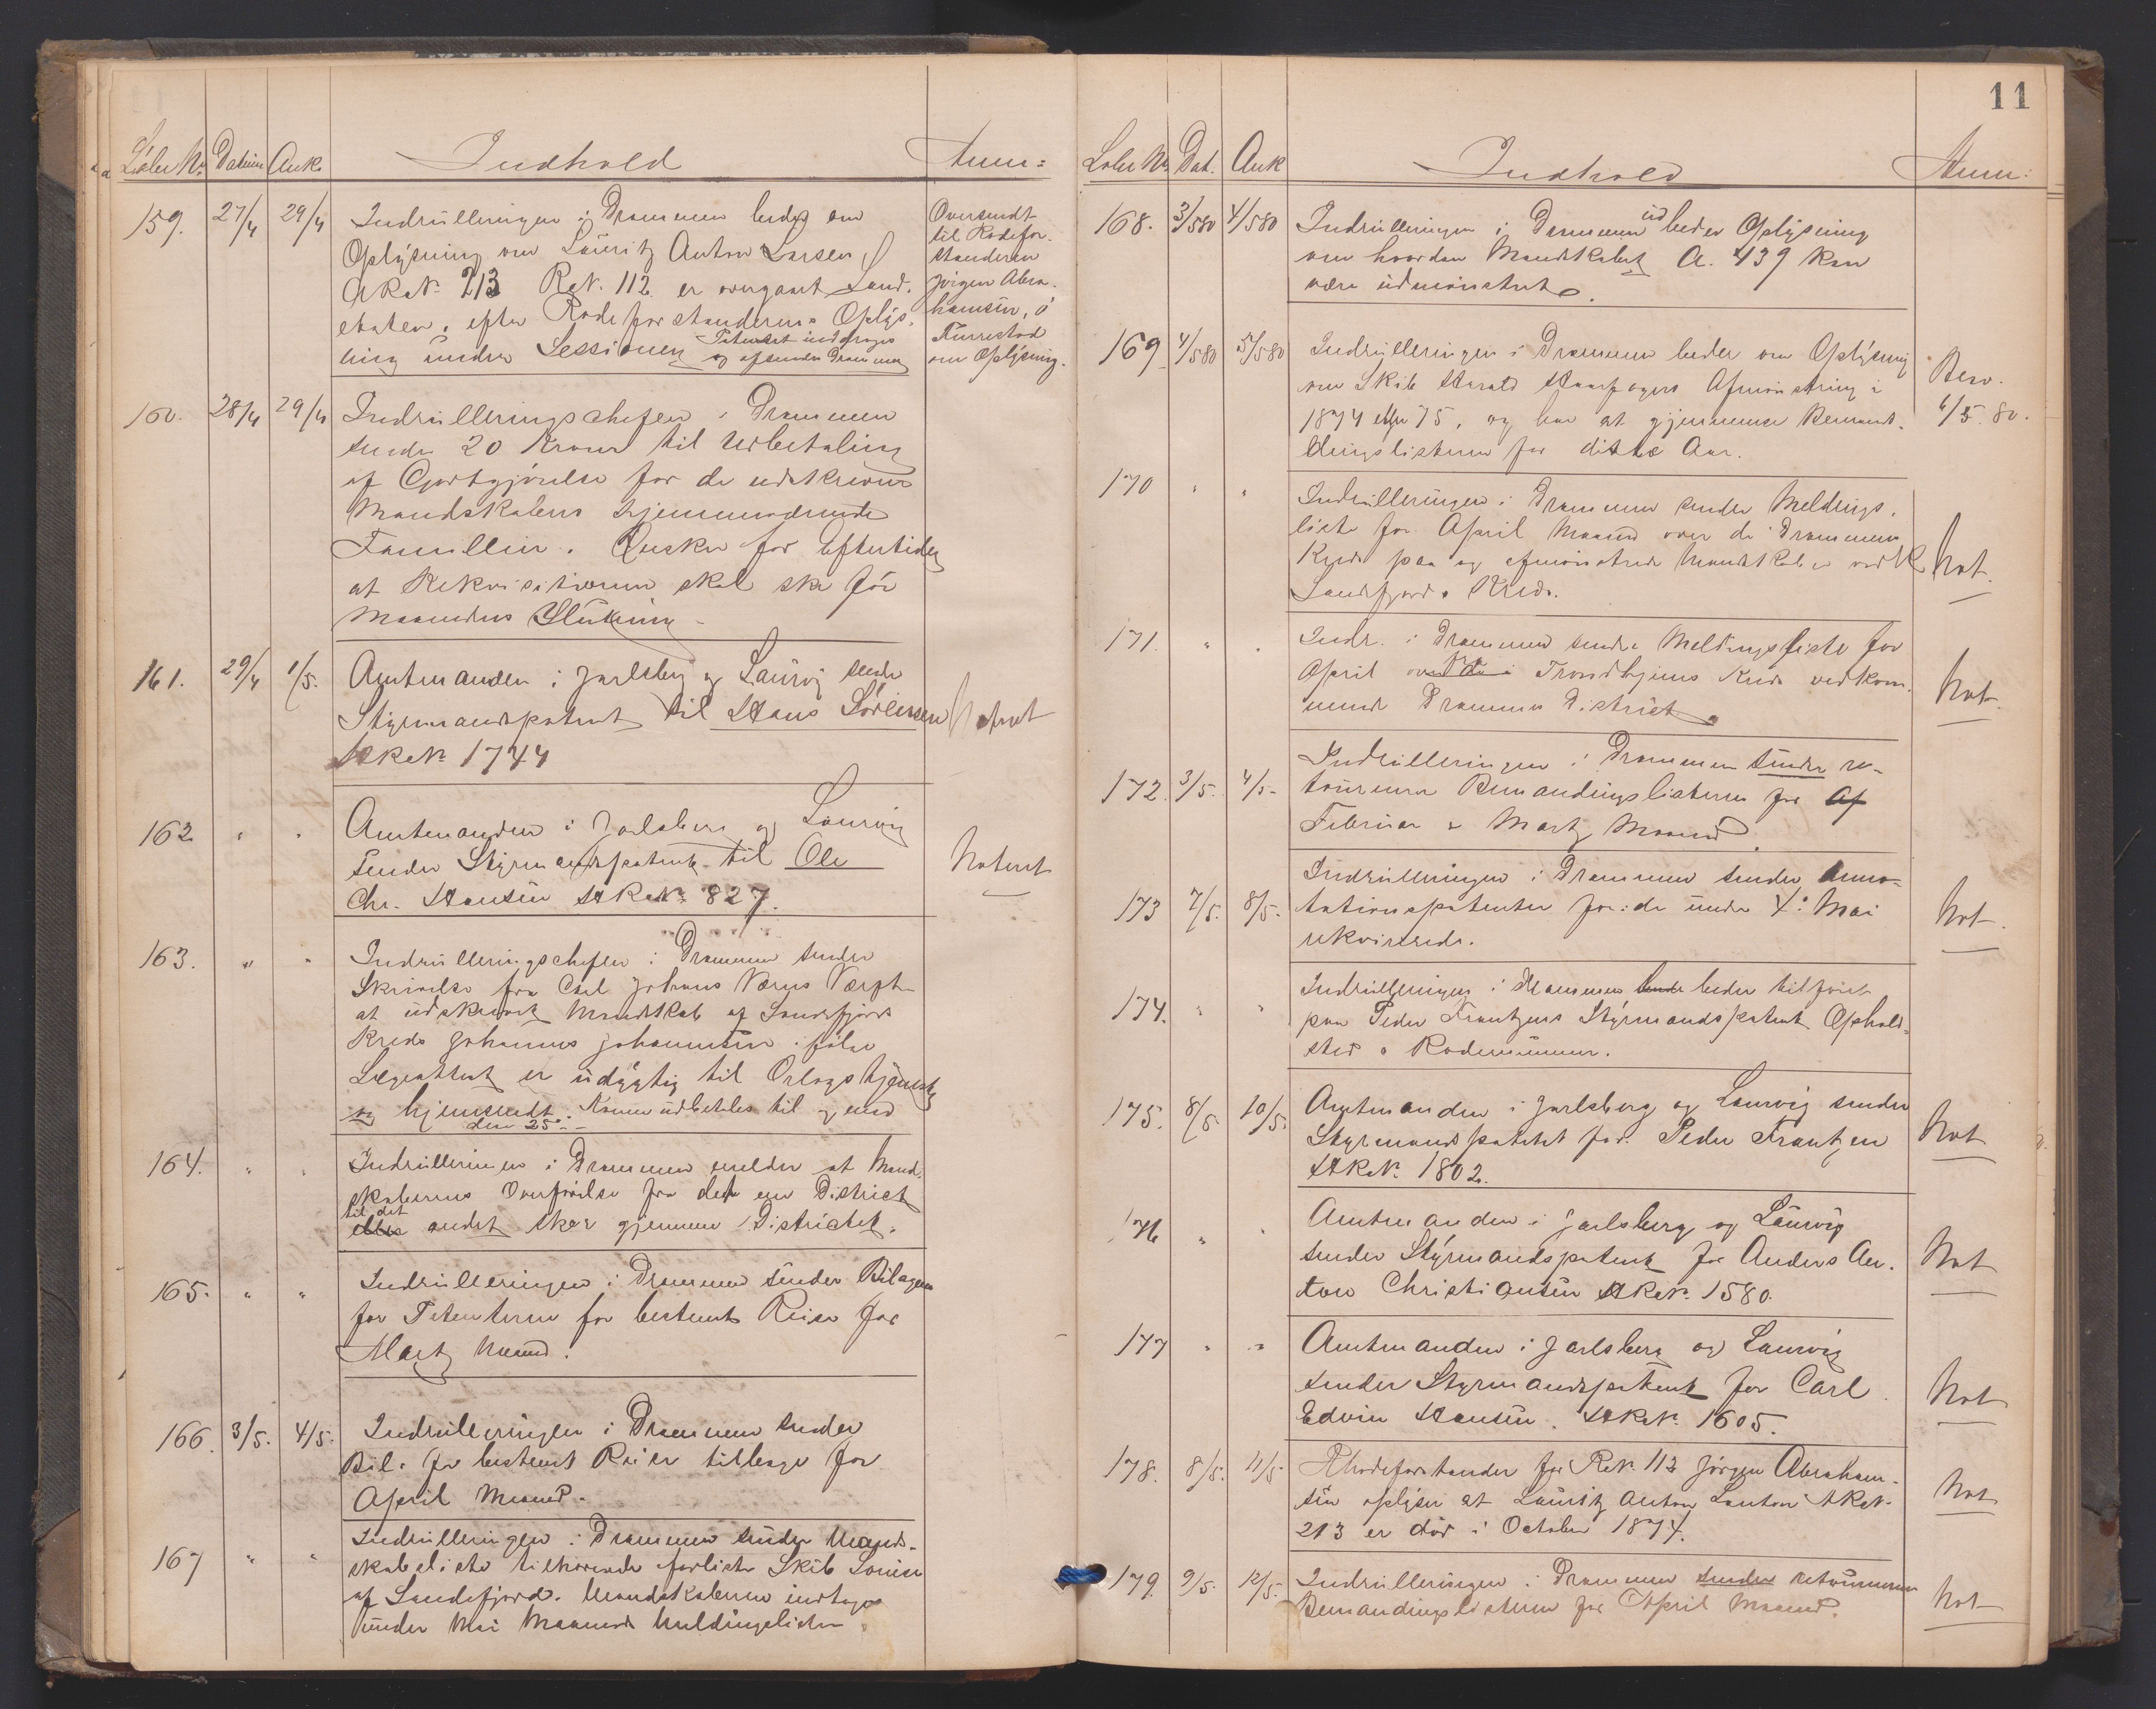 Löbe No Datum Ank. Indhold Anm:
159. 27/4 29/4 Indrulleringen i Drammen bedes om
Oplysning om Lauritz Anton Larsen,
A R No 213 R.No. 112 er overgaaet Land-
etaten, efter Rodeforstanderens Oplys-
ning under Sessionen Patentet inddrages
og afsendes Drammen
Oversendt
til Rodefor-
standeren
Jörgen Abra-
hamsen, ö
om Oplysning.
160. 28/4 29/4 Indrulleringschefen i Drammen
sender 20 Kroner til Udbetaling
af Godtgjörelse for de udskrevne
Mandskabers hjemmeværende
Familier. Önsker for Eftertiden
at Rekvisitionen skal ske för
Maanedens Slutning.
161. 29/4 1/5. Amtmanden i Jarlsberg og Laurvig sender
Styrmandspatent til Hans Sörensen Noteret
A R No 1744
162 " " Amtmanden i Jarlsberg og Laurvig
sender Styrmandspatent til Ole Noteret
Chr. Hansen A R No 827.
163. " " Indrulleringschefen i Drammen sender
Skrivelse fra Carl Johans Værns Værft
at udskrevet Mandskab af Sandefjords
Kreds Johannes Johannesen ifölge
Lægeattest er udygtig til Orlogstjeneste
og hjemsendt. Kosten udbetales til og med
den 25de
164. " " Indrulleringen i Drammen melder at Mand-
skabernes Overförelse fra det ene District
til det
eller andet sker gjennem Districtet.
165. " " Indrulleringen i Drammen sender Bilagene
for Patenterne for bestemt Reise for
Martz Maaned.
166. 3/5. 4/5. Indrulleringen i Drammen sender
Bil. for bestemt Reise tilbage for
April Maaned.
167 " " Indrulleringen i Drammen sender Mand-
skabsliste tilhörende forliste Skib Louise
af Sandefjord. Mandskaberne indtages
under Mai Maaneds Meldingslister
11
Löbe No Dat. Ank Indhold Anm:
168. 3/5 80 4/5 80 Indrulleringen i Drammen udbeder Oplysning
om hvordan Mandskabet A. 439 kan
være udmönstret.
169. 4/5 80 5/5 80 Indrulleringen i Drammen beder om Oplysning
om Skib Harald Haarfagers Afmönstring i
1874 eller 75, og har at gjennemse Bemand-
dingslisterne for ditto Aar.
Besv.
6/5 80.
170 " " Indrulleringen i Drammen sender Meldings-
liste for April Maaned over de i Drammens
Kreds paa og afmönstrede Mandskaber vedk Not.
Sandefjords Kreds.
171. " " Indr. i Drammen sender Meldingsliste for
April over de i Trondhjems Kreds vedkom- Not.
mende Drammens District.
172. 3/5. 4/5. Indrulleringen i Drammen sender re-
tournerer Bemandingslisterne for Af
Februar & Martz Maaned.
173 7/5. 8/5. Indrulleringen i Drammen sender Anno-
tationspatenter for: de under 4de Mai Not.
rekvirerede.
174. " " Indrulleringen i Drammen sender beder tilföiet
paa Peder Frantzens Styrmandspatent Ophold-
sted o Rodenummer.
175. 8/5. 10/5. Amtmanden i Jarlsberg og Laurvig sender
Styrmandspatentet for Peder Frantzen Not
A R No 1802.
176 " " Amtmanden i Jarlsberg og Laurvig
sender Styrmandspatent for Anders An- Not
ton Christiansen A R No. 1580.
177 " " Amtmanden i Jarlsberg og Laurvig
sender Styrmandspatent for Carl Not
Edvin Hansen. A R No. 1605.
178. 8/5. 11/5 Rhodeforstander for R.No. 112 Jörgen Abraham-
sen oplyser at Lauritz Anton A R No. Not
213 er död i October 1874.
179. 9/5. 12/5. Indrulleringen i Drammen sender retournerer
Bemandingslisterne for April Maaned. Not